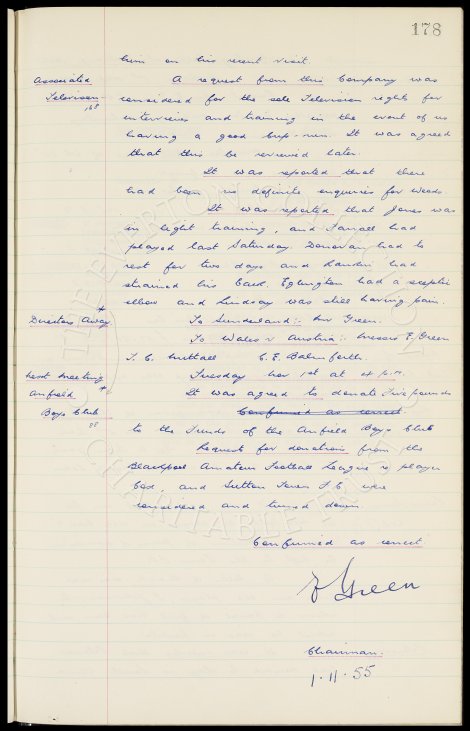 178
him on his recent visit.
Associated Television 68
A request from this Company was
considered for the sole Television rights for
interviews and training in the event of us
having a good Cup-run. It was agreed
that this be reviewed later.
It was reported that there
had been no definite enquiries for Woods
It was reported that Jones was
in light training, and Farrall had
played last Saturday. Donovan had to
rest for two days and Rankin had
strained his back. Eglington had a sceptic
elbow and Lindsay was still having pain.
Directors Away
To Sunderland:- Mr Green.
To Wales v Austria:- Messrs E. Green
T.C. Nuttall C.E. Balmforth.
Next Meeting
Tuesday Nov 1st at 4 p.m.
Anfield Boys Club
It was agreed to donate Five pounds
Confirmed as correct
to the Funds of the Anfield Boys Club
Request for donations from the
Blackpool Amateur Football League & player
Cox, and Sutton Town F.C. were
considered and turned down.
Confirmed as correct
E Green
Chairman.
1.11.55
THE EVERTON COLLECTION
CHARITABLE TRUST